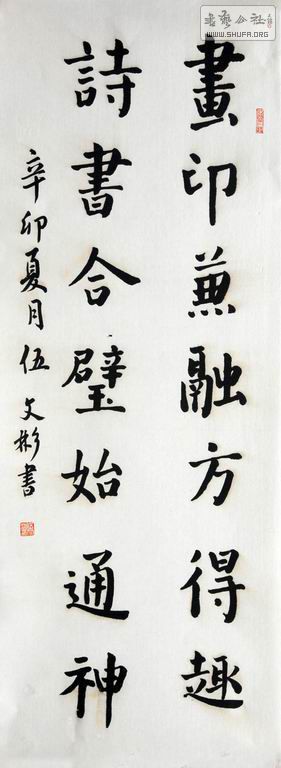 畫印兼融方得趣
詩書合璧始通神
辛卯夏月伍文彬書
書藝公社
WWW.SHUFA.ORG